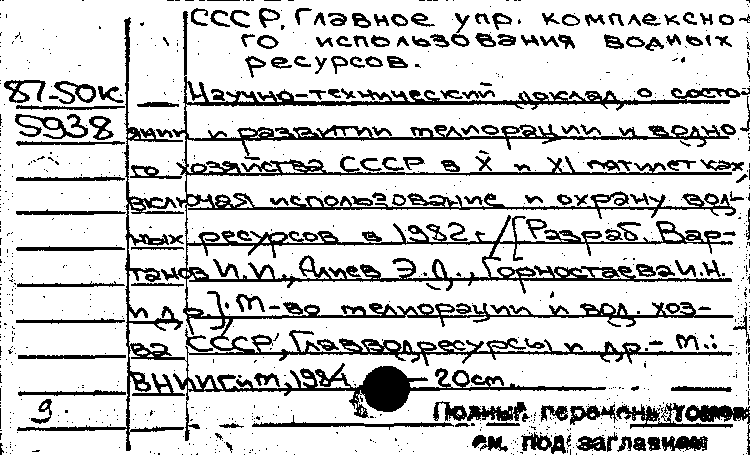 СССР. Главное упр. комплексно-
го использования водных
ресурсов.
87-50к Научно-технический доклад о состо-
5938 янии и развитии мелиорации и водно-
го хозяйства СССР в X и XI пятилетках,
включая использование и охрану вод-
ных ресурсов в 1982 г. / [Разраб. Вар-
танов И.И., Алиев Э.Д., Горностаева И.Н.
и др.]; М-во мелиорации и вод. хоз-
ва СССР, Главводресурсы и др. - М.:
ВНИИГиМ, 1984 - 20 см.
9.
Полный перечень томов
см. под заглавием